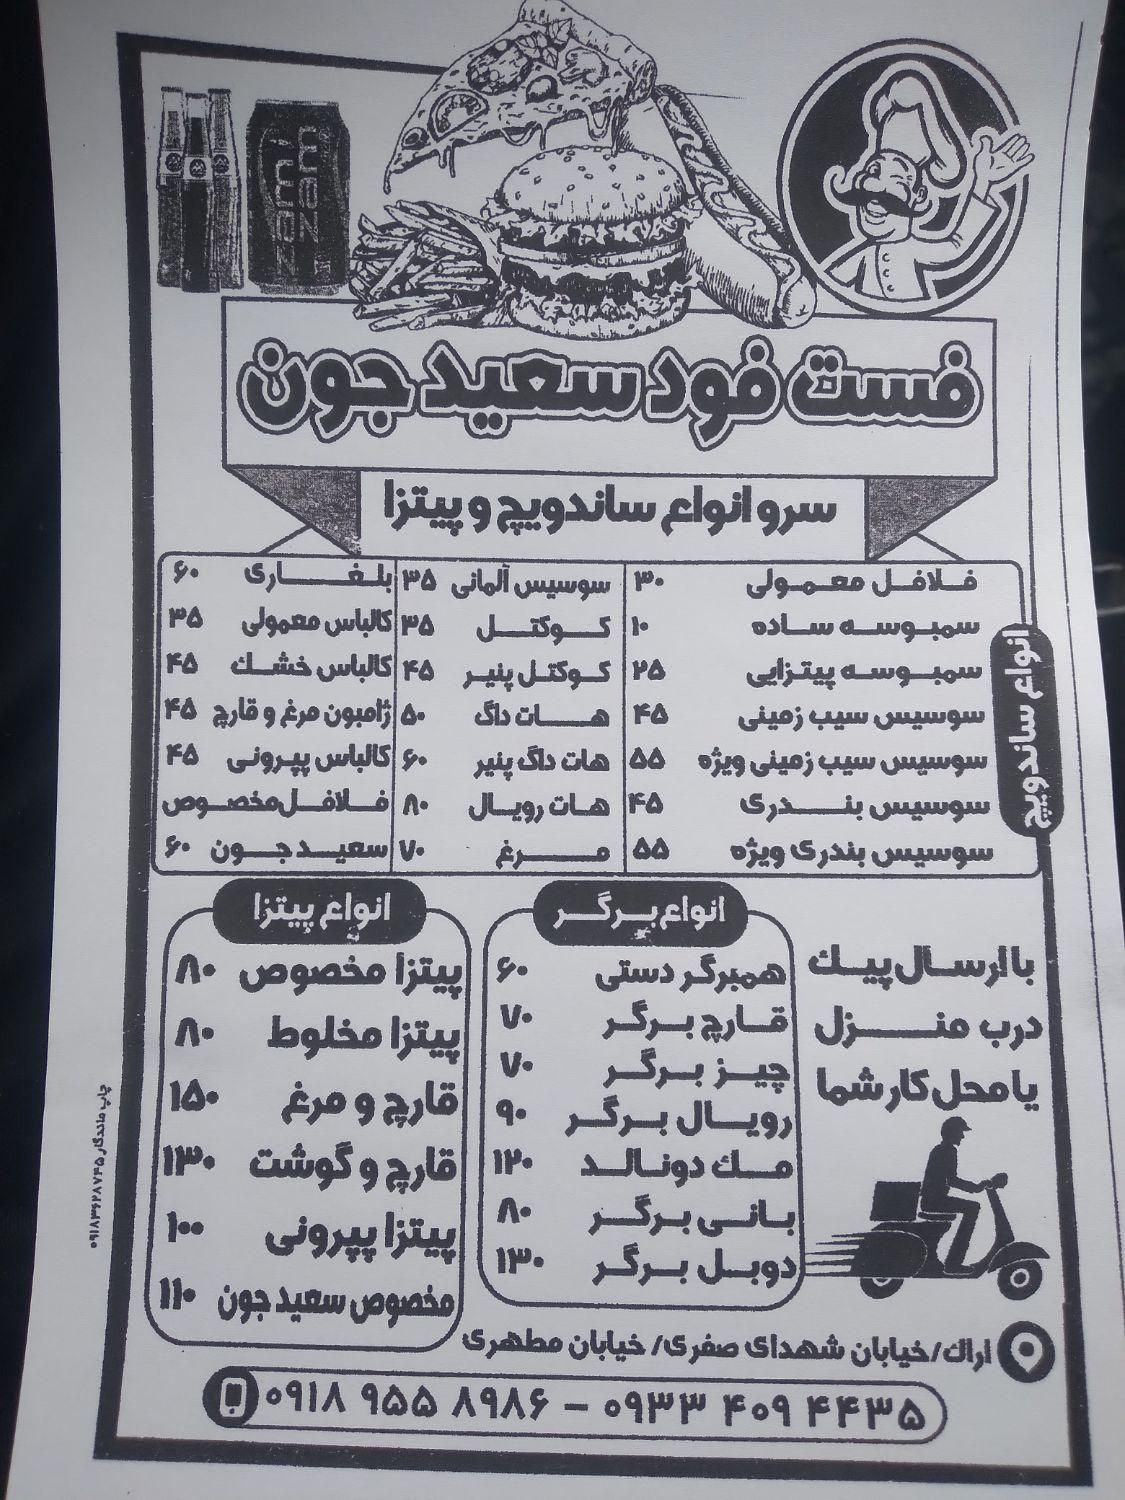 zam zam
فست فود سعید جون
سرو انواع ساندویچ و پیتزا
انواع ساندویچ
فلافل معمولی ۳۰
سمبوسه ساده ۱۰
سمبوسه پیتزایی ۲۵
سوسیس سیب زمینی ۴۵
سوسیس سیب زمینی ویژه ۵۵
سوسیس بندری ۴۵
سوسیس بندری ویژه ۵۵
سوسیس آلمانی ۳۵
کوکتل ۳۵
کوکتل پنیر ۴۵
هات داگ ۵۰
هات داگ پنیر ۶۰
هات رویال ۸۰
مرغ ۷۰
بلغاری ۶۰
کالباس معمولی ۳۵
کالباس خشک ۴۵
ژامبون مرغ و قارچ ۴۵
کالباس پپرونی ۴۵
فلافل مخصوص
سعید جون ۶۰
با ارسال پیک
درب منزل
یا محل کار شما
انواع برگر
همبرگر دستی ۶۰
قارچ برگر ۷۰
چیز برگر ۷۰
رویال برگر ۹۰
مک دونالد ۱۲۰
بانی برگر ۸۰
دوبل برگر ۱۳۰
انواع پیتزا
پیتزا مخصوص ۸۰
پیتزا مخلوط ۸۰
قارچ و مرغ ۱۵۰
قارچ و گوشت ۱۳۰
پیتزا پپرونی ۱۰۰
مخصوص سعید جون ۱۱۰
اراک/خیابان شهدای صفری/ خیابان مطهری
۰۹۱۸ ۹۵۵ ۸۹۸۶ - ۰۹۳۳ ۴۰۹ ۴۴۳۵
چاپ ماندگار ۰۹۱۸۳۶۲۸۷۴۵